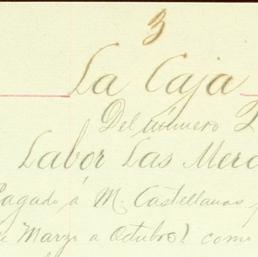 3
La Caja
Del número
Labor Las Merc
Pagado á M. Castellanos
de Marzo a Octubre como